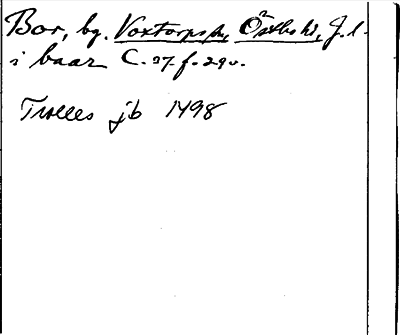 Bor, by. Voxtorps sn, Östbo hd, J. l.
i baar C. 27. f. 29 v.
Trolles jb 1498